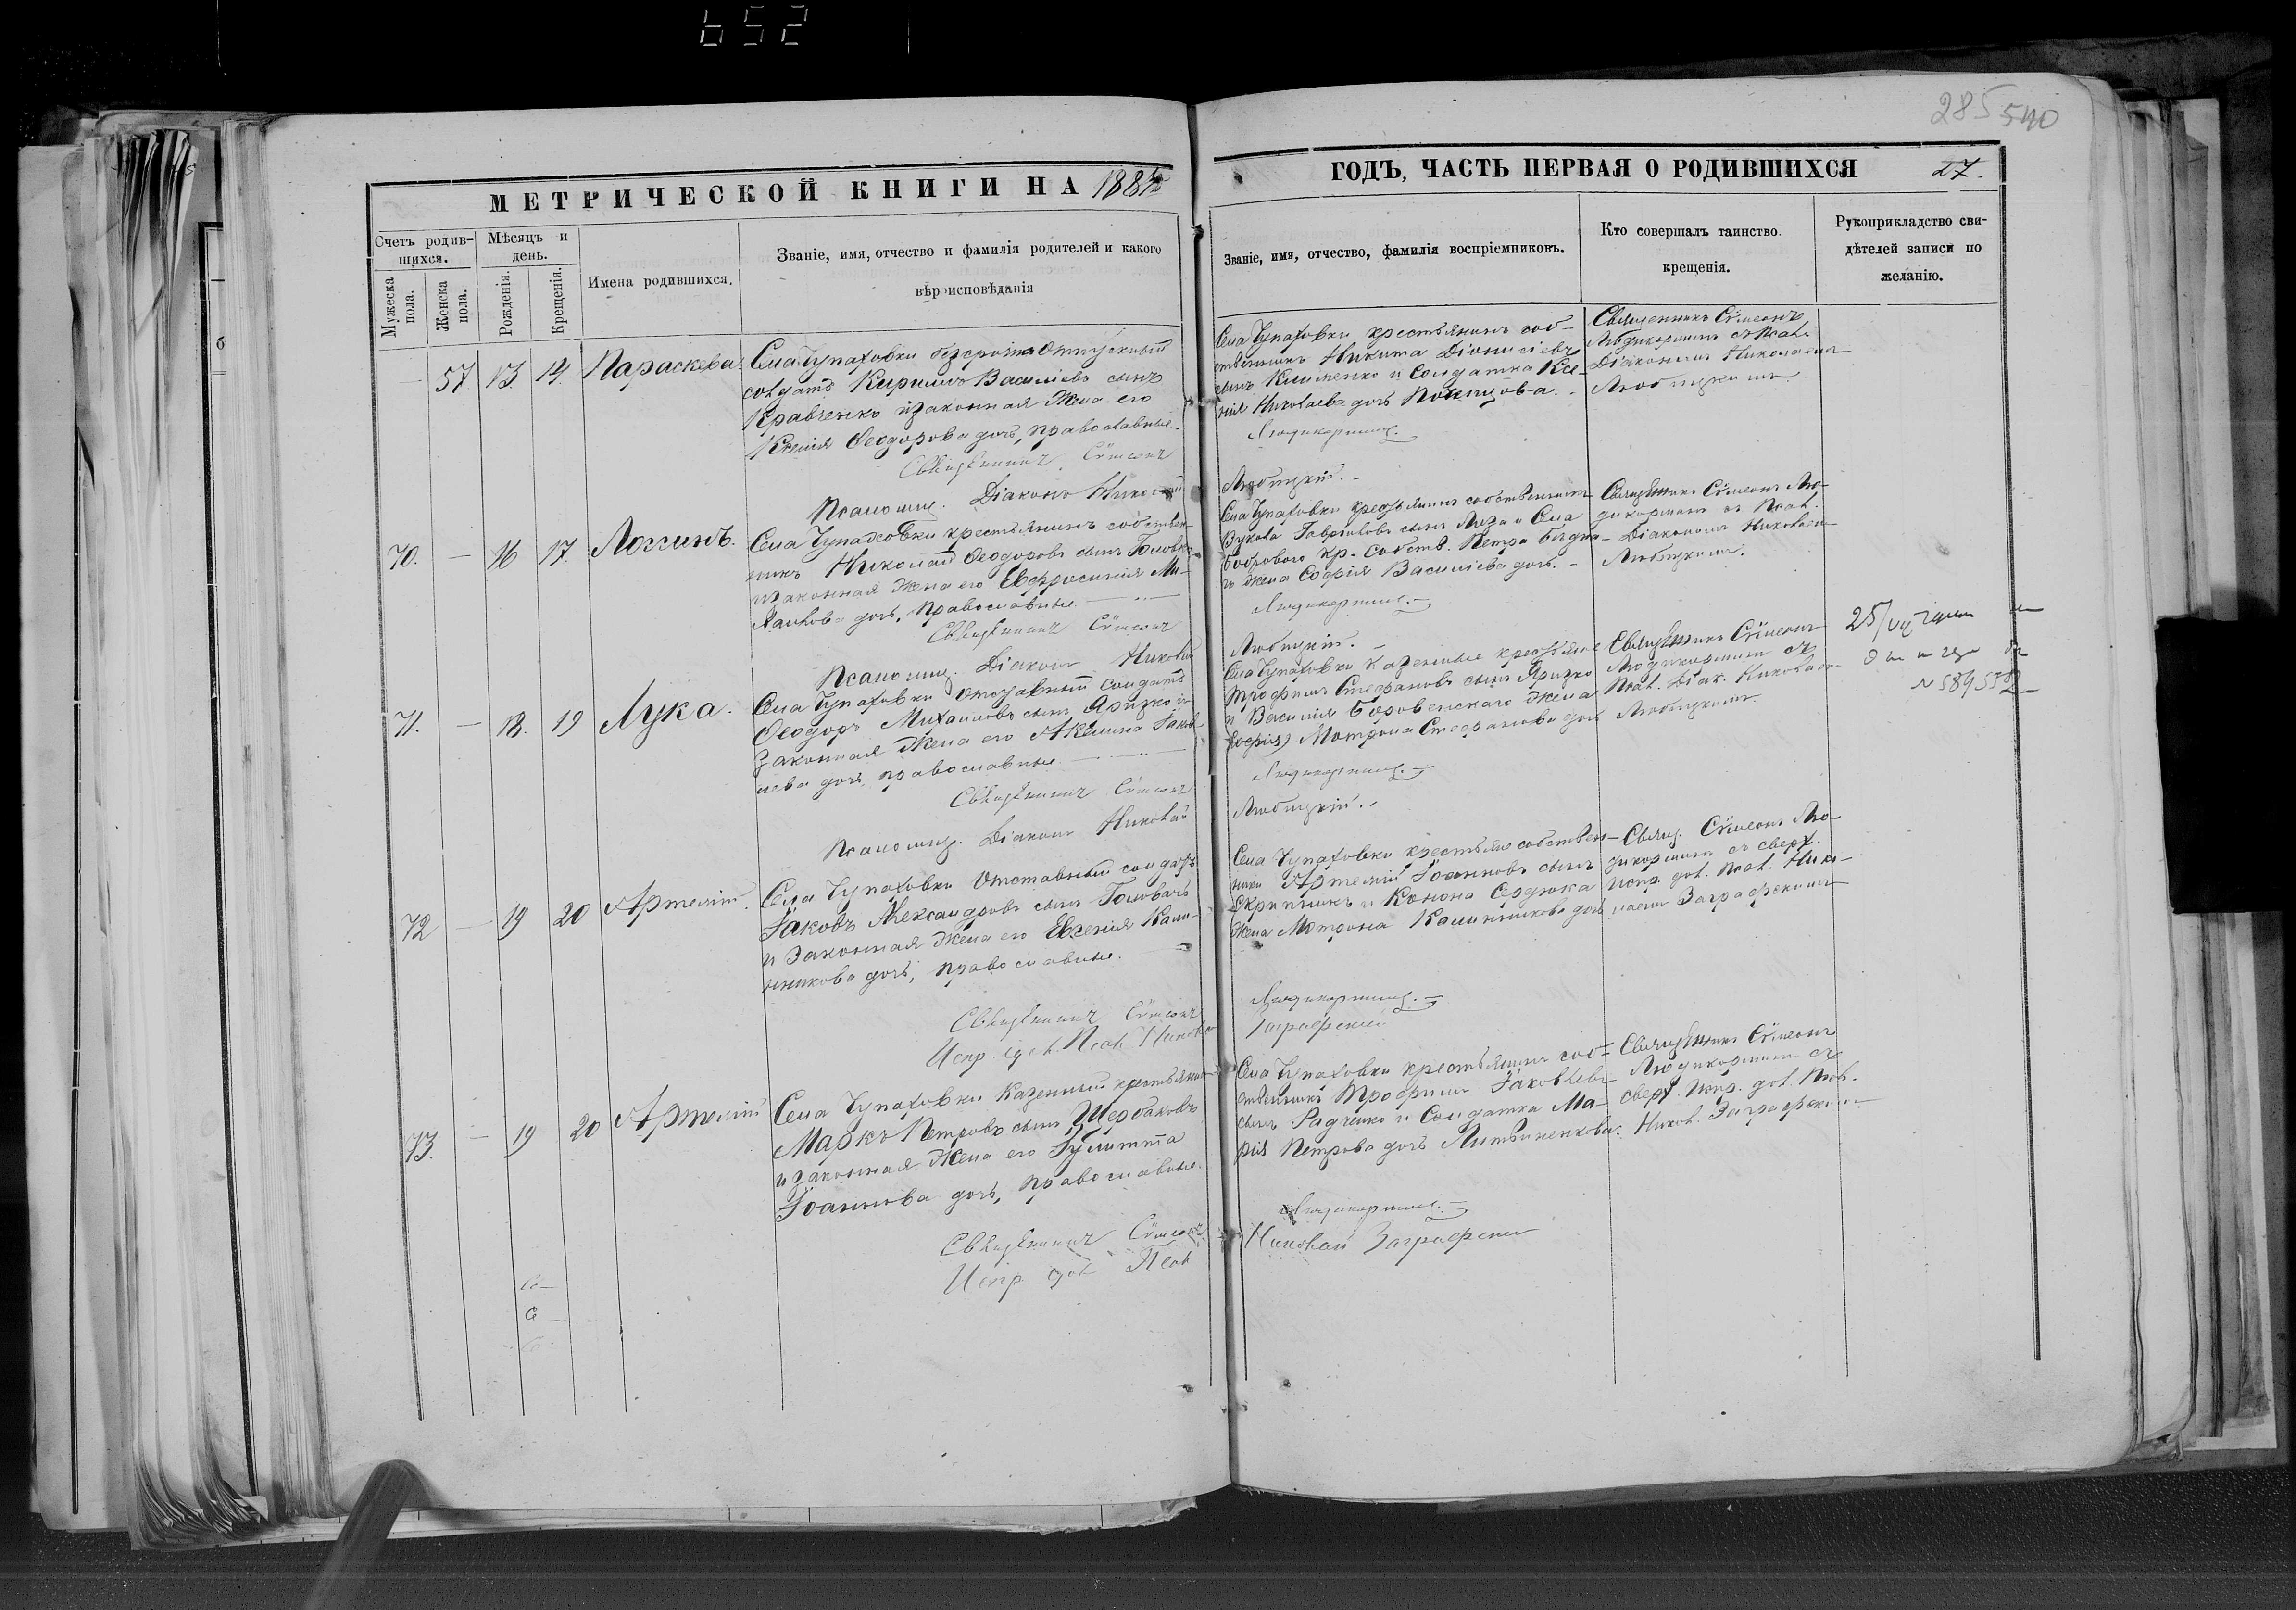 652
285 540
МЕТРИЧЕСКОЙ КНИГИ НА
ГОДЪ, ЧАСТЬ ПЕРВАЯ О РОДИВШИХСЯ
27.
Счетъ родив-
шихся.
Мужеска
пола.
Женска
пола.
Мѣсяцъ и
день.
Рожденія.
Крещенія.
Имена родившихся.
Званіе, имя, отчество и фамилія родителей и какого
вѣроисповѣданія
Званіе, имя, отчество, фамилія воспріемниковъ.
Кто совершалъ таинство
крещенія.
Рукоприкладство сви-
дѣтелей записи по
желанію.
57 13 14. Параскева.
Села Чупаховки безсрочно отпускный
солдатъ Кириллъ Василіевъ сынъ
Кравченко и законная жена его
Ксенія Ѳеодорова дочь, православные.
Священникъ Сѵмеонъ
Псаломщ. Діаконъ Николай
Села Чупаховки крестьянинъ соб-
ственникъ Никита Діонисіевъ
сынъ Клименко и солдатка Ксе-
нія Николаева дочь
Людикорминъ.
Любицкій.
Священникъ Сѵмеонъ
Людикорминъ съ Псал.
Діакономъ Николаемъ
Любицкимъ.
70. — 16 17. Логинъ.
Села Чупаховки крестьянинъ собствен-
никъ Николай Ѳеодоровъ сынъ
и законная жена его Евфросинія
дочь, православные
Священникъ Сѵмеонъ
Псаломщ. Діаконъ Николай
Села Чупаховки крестьянинъ собственникъ
Гавріиловъ сынъ и села
Боброваго кр. собств. Петра
жена Софія Василіева дочь.
Людикорминъ.
Любицкій.
Священникъ Сѵмеонъ Лю-
дикорминъ съ Псал.
Діакономъ Николаемъ
Любицкимъ.
71. — 18. 19 Лука.
Села Чупаховки отставный солдатъ
Ѳеодоръ Михаиловъ сынъ Яризко и
законная жена его Акелина
дочь, православные
Священникъ Сѵмеонъ
Псаломщ. Діаконъ Николай
Села Чупаховки казенные крестьяне
Трофимъ Стефановъ сынъ Яризко
и Василія Боровенскаго жена
Мотрона Стефанова дочь
Людикорминъ.
Любицкій.
Священникъ Сѵмеонъ
Людикорминъ съ
Псал. Діак. Николаемъ
Любицкимъ.
72 — 19 20 Артемій.
Села Чупаховки отставный солдатъ
Іаковъ Александровъ сынъ Головачъ
и законная жена его Евгенія Кали-
никова дочь, православные.
Священникъ Сѵмеонъ
Испр. дол. Псал. Николай
Села Чупаховки крестьяне собствен-
ники Артемій Іоанновъ сынъ
Скрипникъ и Конона Сердюка
жена Мотрона Калинникова дочь
Людикорминъ.
Заграфскій
Священ. Сѵмеонъ Лю-
дикорминъ съ сверх.
испр. дол. Псал. Нико-
лаемъ Заграфскимъ
73. — 19 20 Артемій
Села Чупаховки казенный крестьянинъ
Маркъ Петровъ сынъ Щербаковъ
и законная жена его Іулитта
Іоаннова дочь, православные.
Священникъ Сѵмеонъ
Испр. дол. Псал.
Села Чупаховки крестьянинъ соб-
ственникъ Трофимъ Іаковлевъ
сынъ Радченко и солдатка Ма-
рія Петрова дочь Литвиненкова.
Людикорминъ.
Николай Заграфскій
Священникъ Сѵмеонъ
Людикорминъ съ
сверх. испр. дол. Псал.
Никол. Заграфскимъ